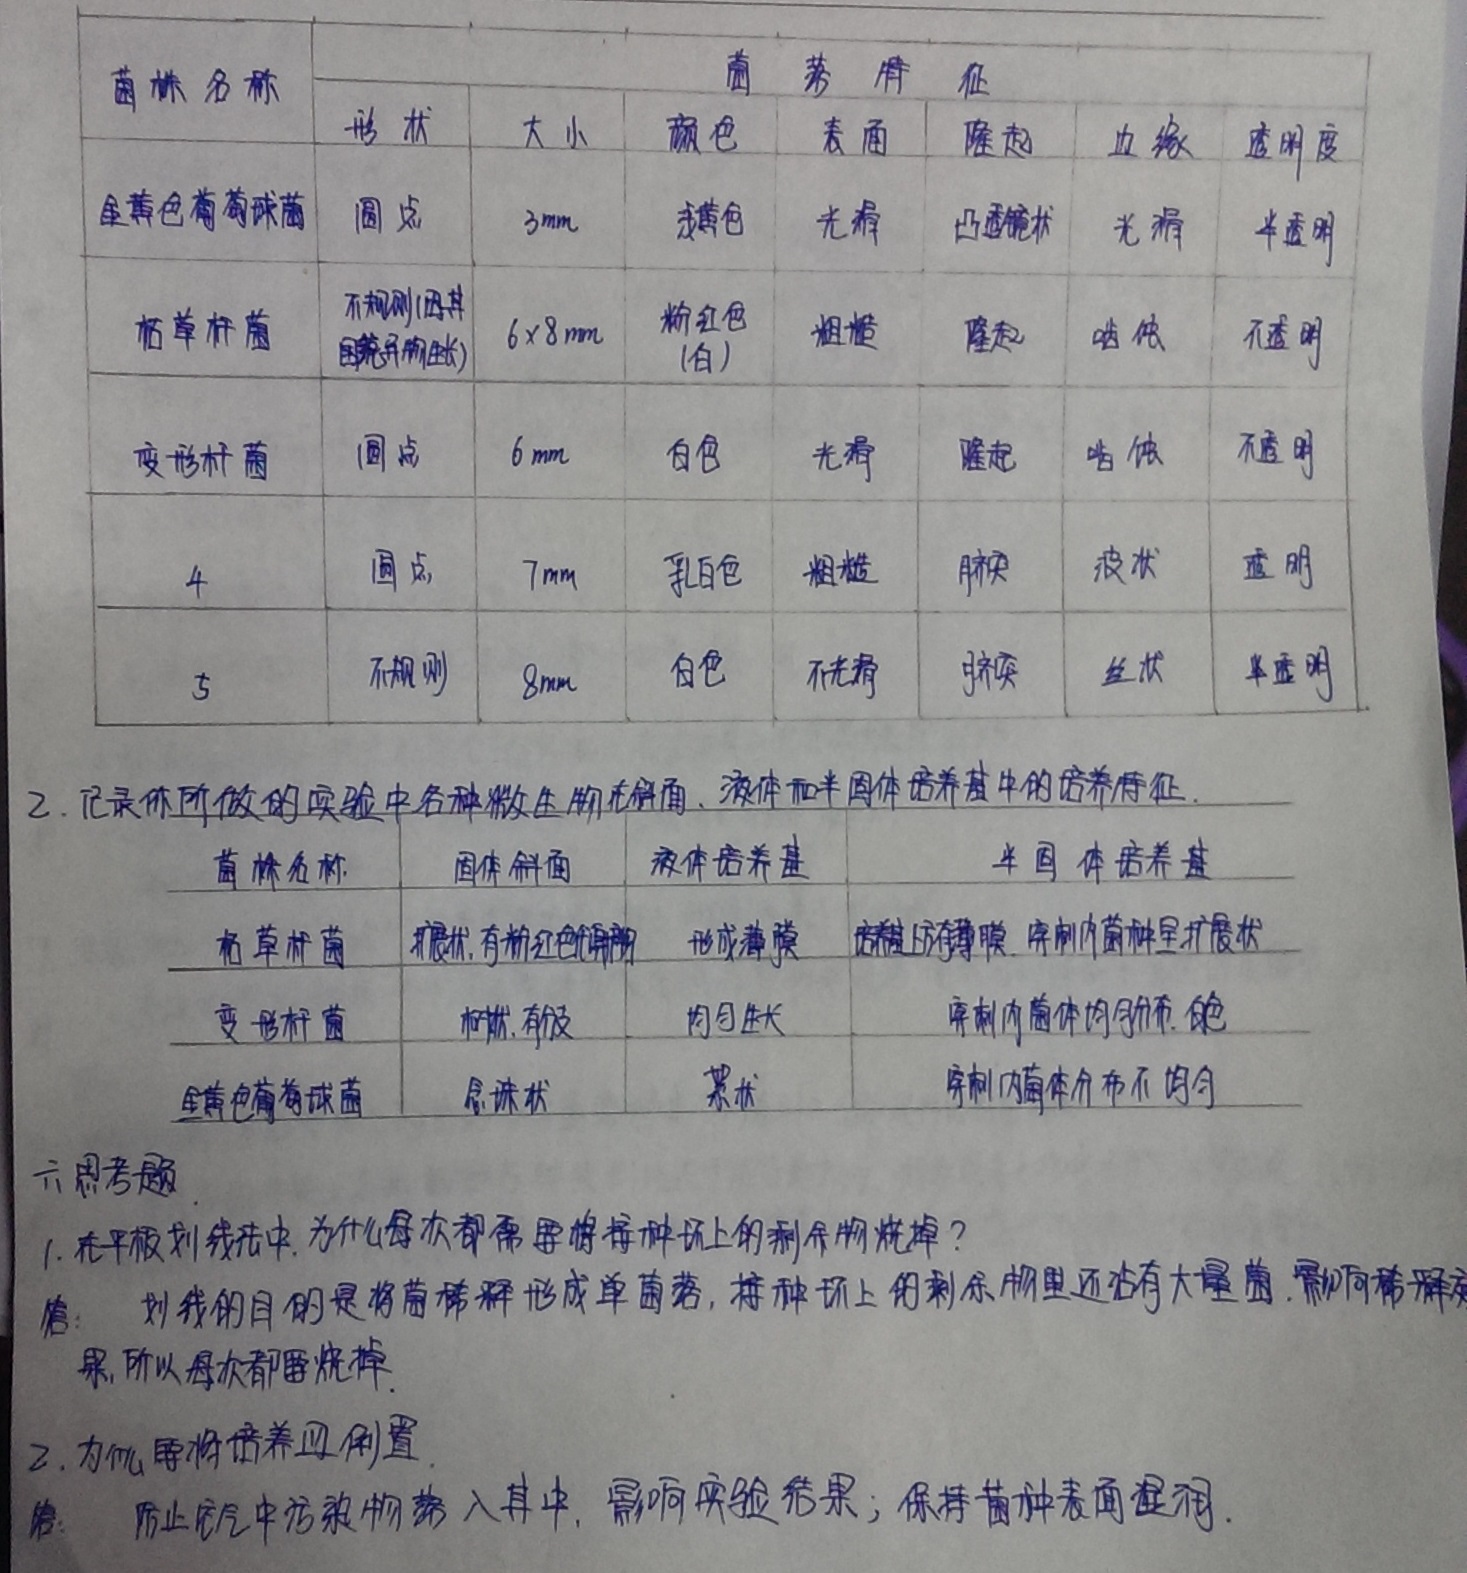 菌株名称 菌落特征
形状 大小 颜色 表面 隆起 边缘 透明度
金黄色葡萄球菌 圆点 3mm 浅黄色 光滑 凸透镜状 光滑 半透明
枯草杆菌 不规则(因其 6×8mm 粉红色 粗糙 隆起 啮蚀 不透明
生长) (白)
变形杆菌 圆点 6mm 白色 光滑 隆起 啮蚀 不透明
4 圆点 7mm 乳白色 粗糙 脐突 波状 透明
5 不规则 8mm 白色 不光滑 脐突 丝状 半透明
2. 记录你所做的实验中各种微生物在斜面、液体和半固体培养基中的培养特征.
菌株名称 固体斜面 液体培养基 半固体培养基
枯草杆菌 扩展状,有粉红色 形成薄膜 培养基上方有薄膜.穿刺内菌种呈扩展状
变形杆菌 树状,有分及 均匀生长 穿刺内菌体均匀分布.白色
金黄色葡萄球菌 念珠状 絮状 穿刺内菌体分布不均匀
六思考题
1. 在平板划线法中.为什么每次都需要将接种环上的剩余物烧掉?
答: 划线的目的是将菌稀释形成单菌落,接种环上的剩余物里还沾有大量菌.影响稀释效
果,所以每次都要烧掉.
2. 为什么要将培养皿倒置.
答: 防止空气中污染物落入其中.影响实验结果;保持菌种表面湿润.